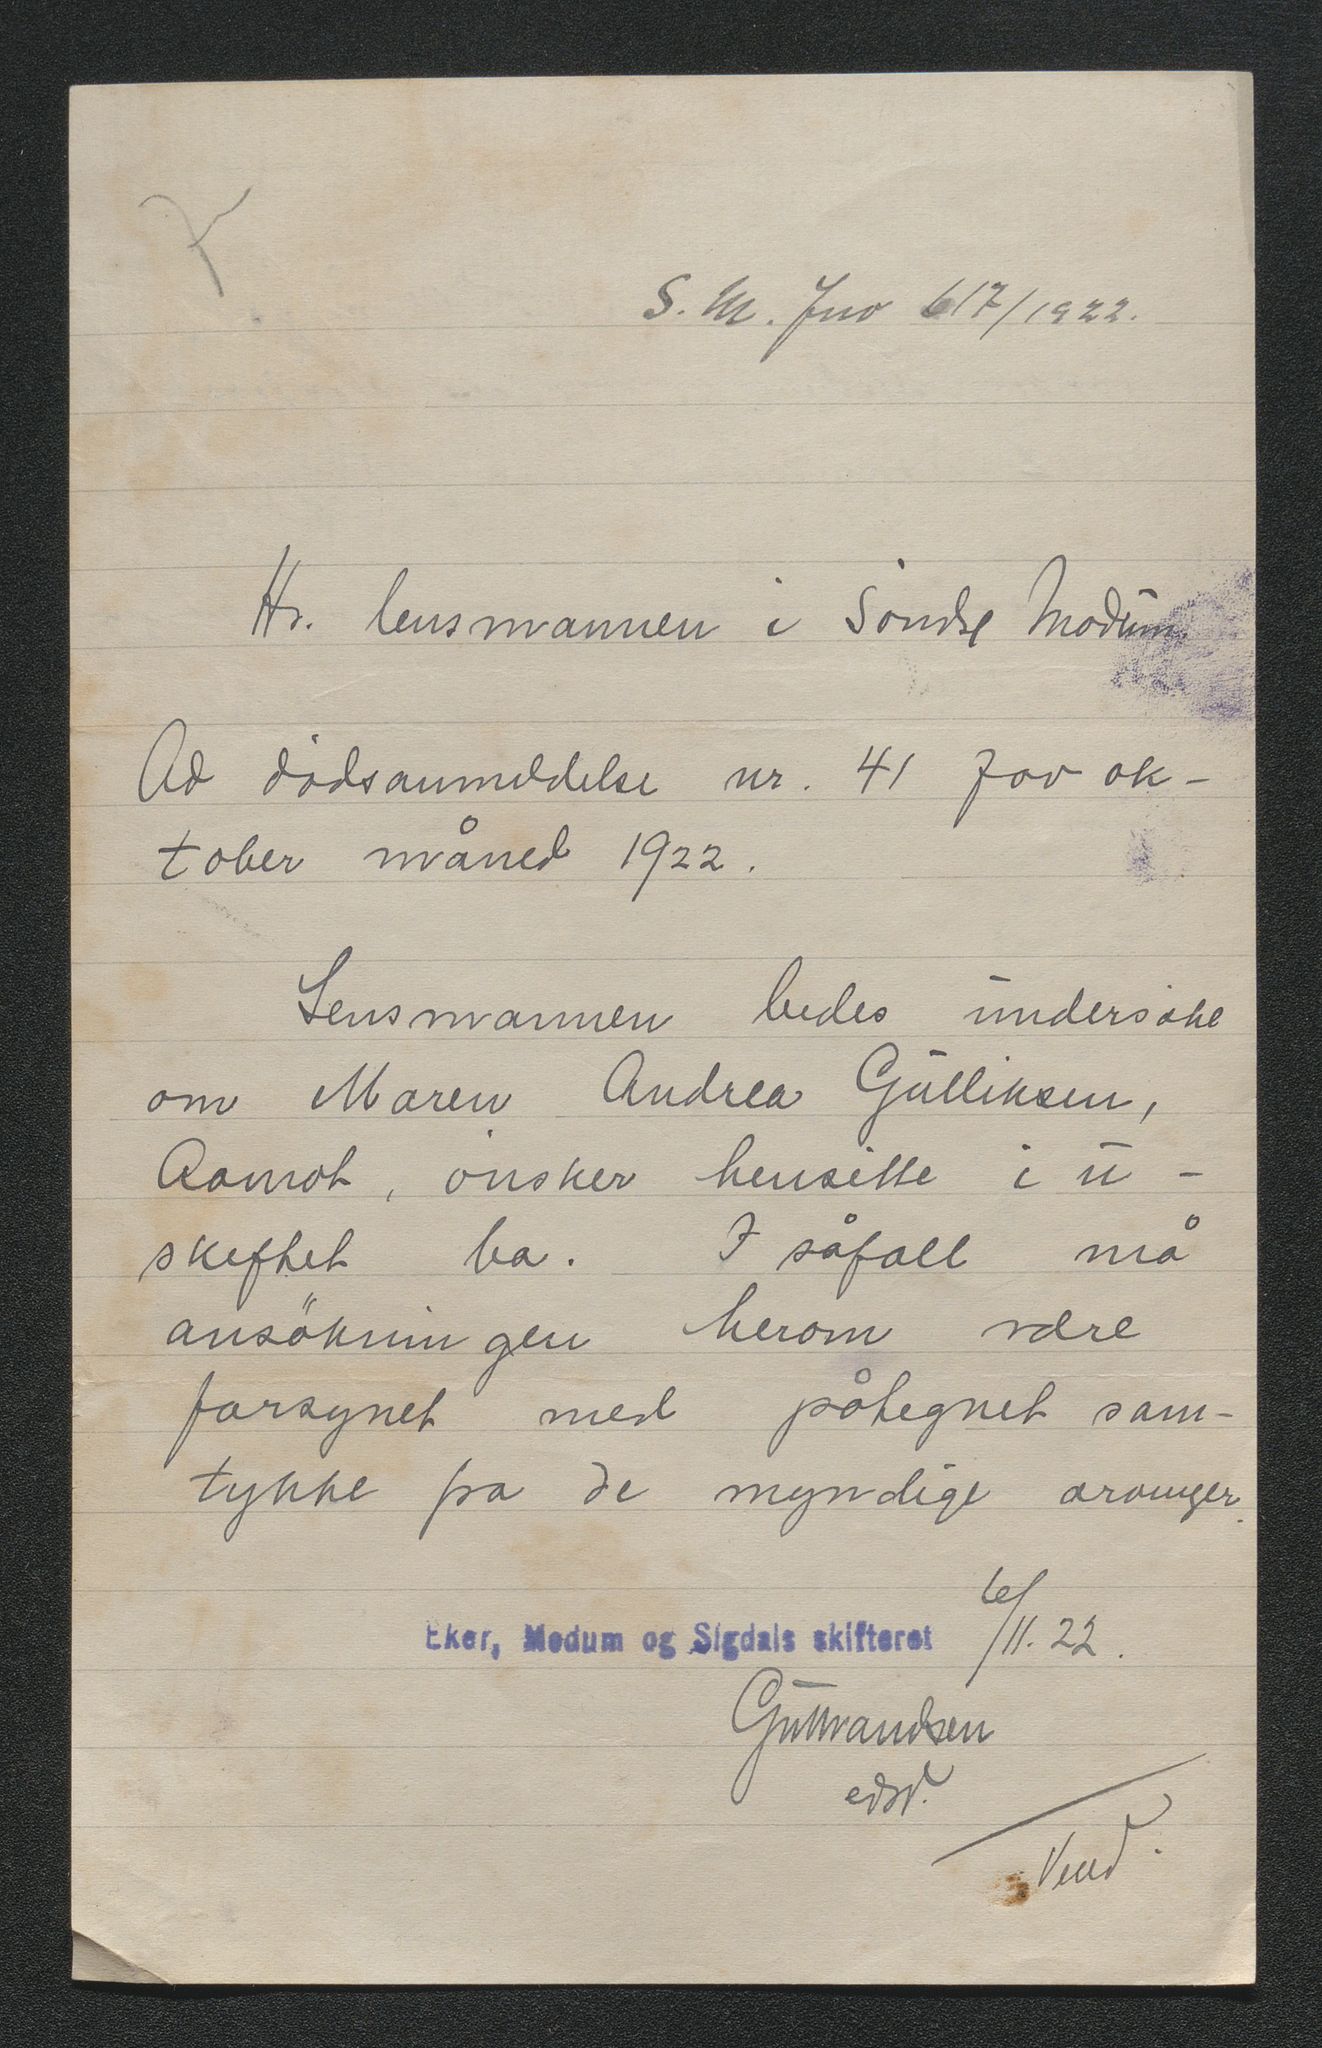 S. M. Jno 617/1922.
Hr. lensmannen i Söndre Modum.
Ad dödsanmeldelse nr. 41 for ok-
tober måned 1922.
Lensmannen bedes undersöke
om Maren Andrea Gulliksen,
Aamot, önsker hensitte i u-
skiftet bo. I såfall må
ansökningen herom være
forsynet med påtegnet sam-
tykke fra de myndige arvinger.
Eker, Modum og Sigdals skifteret 6/11.22.
Guttormsen
edsv.
Vend.